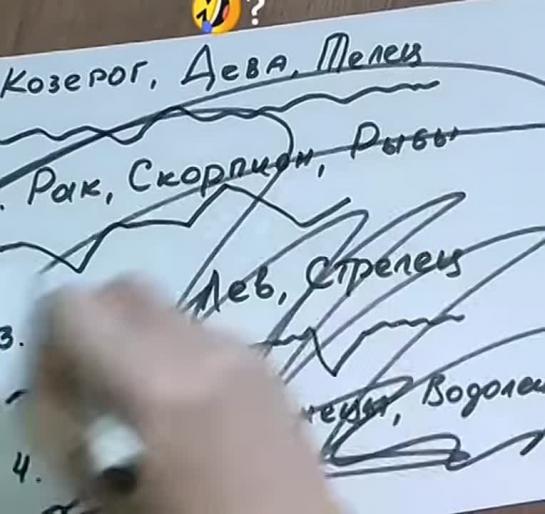 ?
Козерог, Дева, Телец
Рак, Скорпион, Рыбы
3. Лев, Стрелец
4.